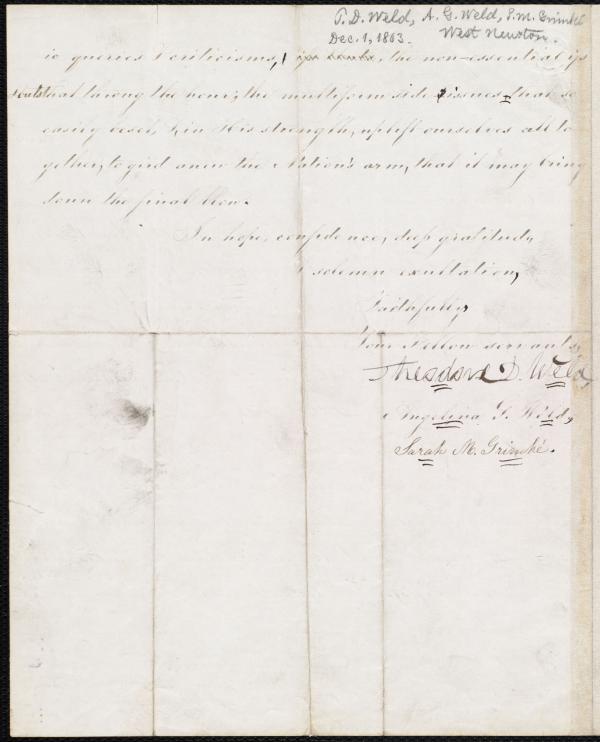 T. D. Weld, A. G. Weld, S. M. Grimké
Dec. 1, 1863. West Newton.
ic queries & criticisms, the non-essential
that throng the hour; the multiform side issues, that so
easily beset, & in His strength, uplift ourselves all to
gether, to gird anew the Nation's arm, that it may bring
down the final blow.
In hope, confidence, deep gratitude,
& solemn exultation,
Faithfully,
Your Fellow servants,
Theodore D. Weld,
Angelina G. Weld,
Sarah M. Grimké.